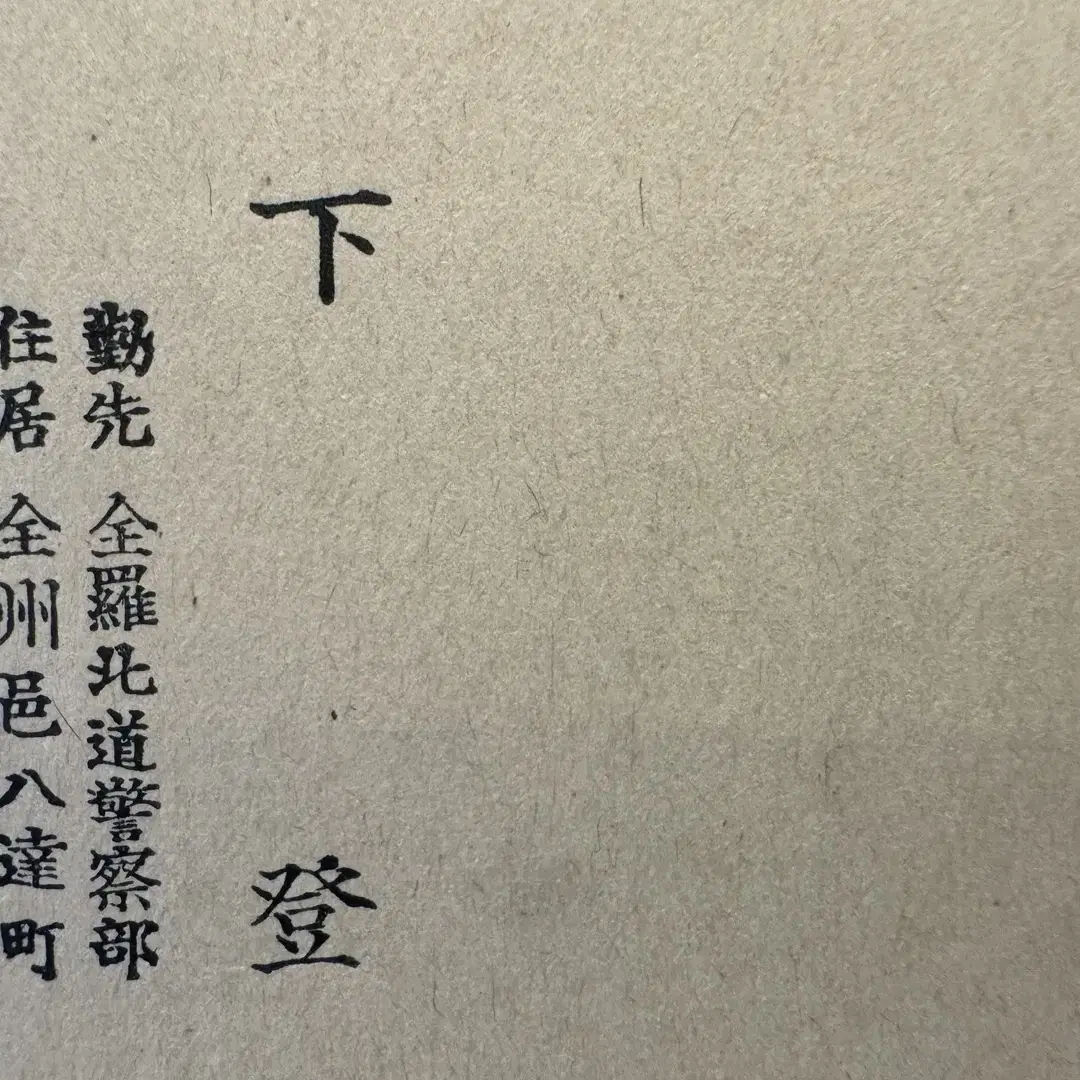 下登
勤先 全羅北道警察部
住居 全州邑八達町